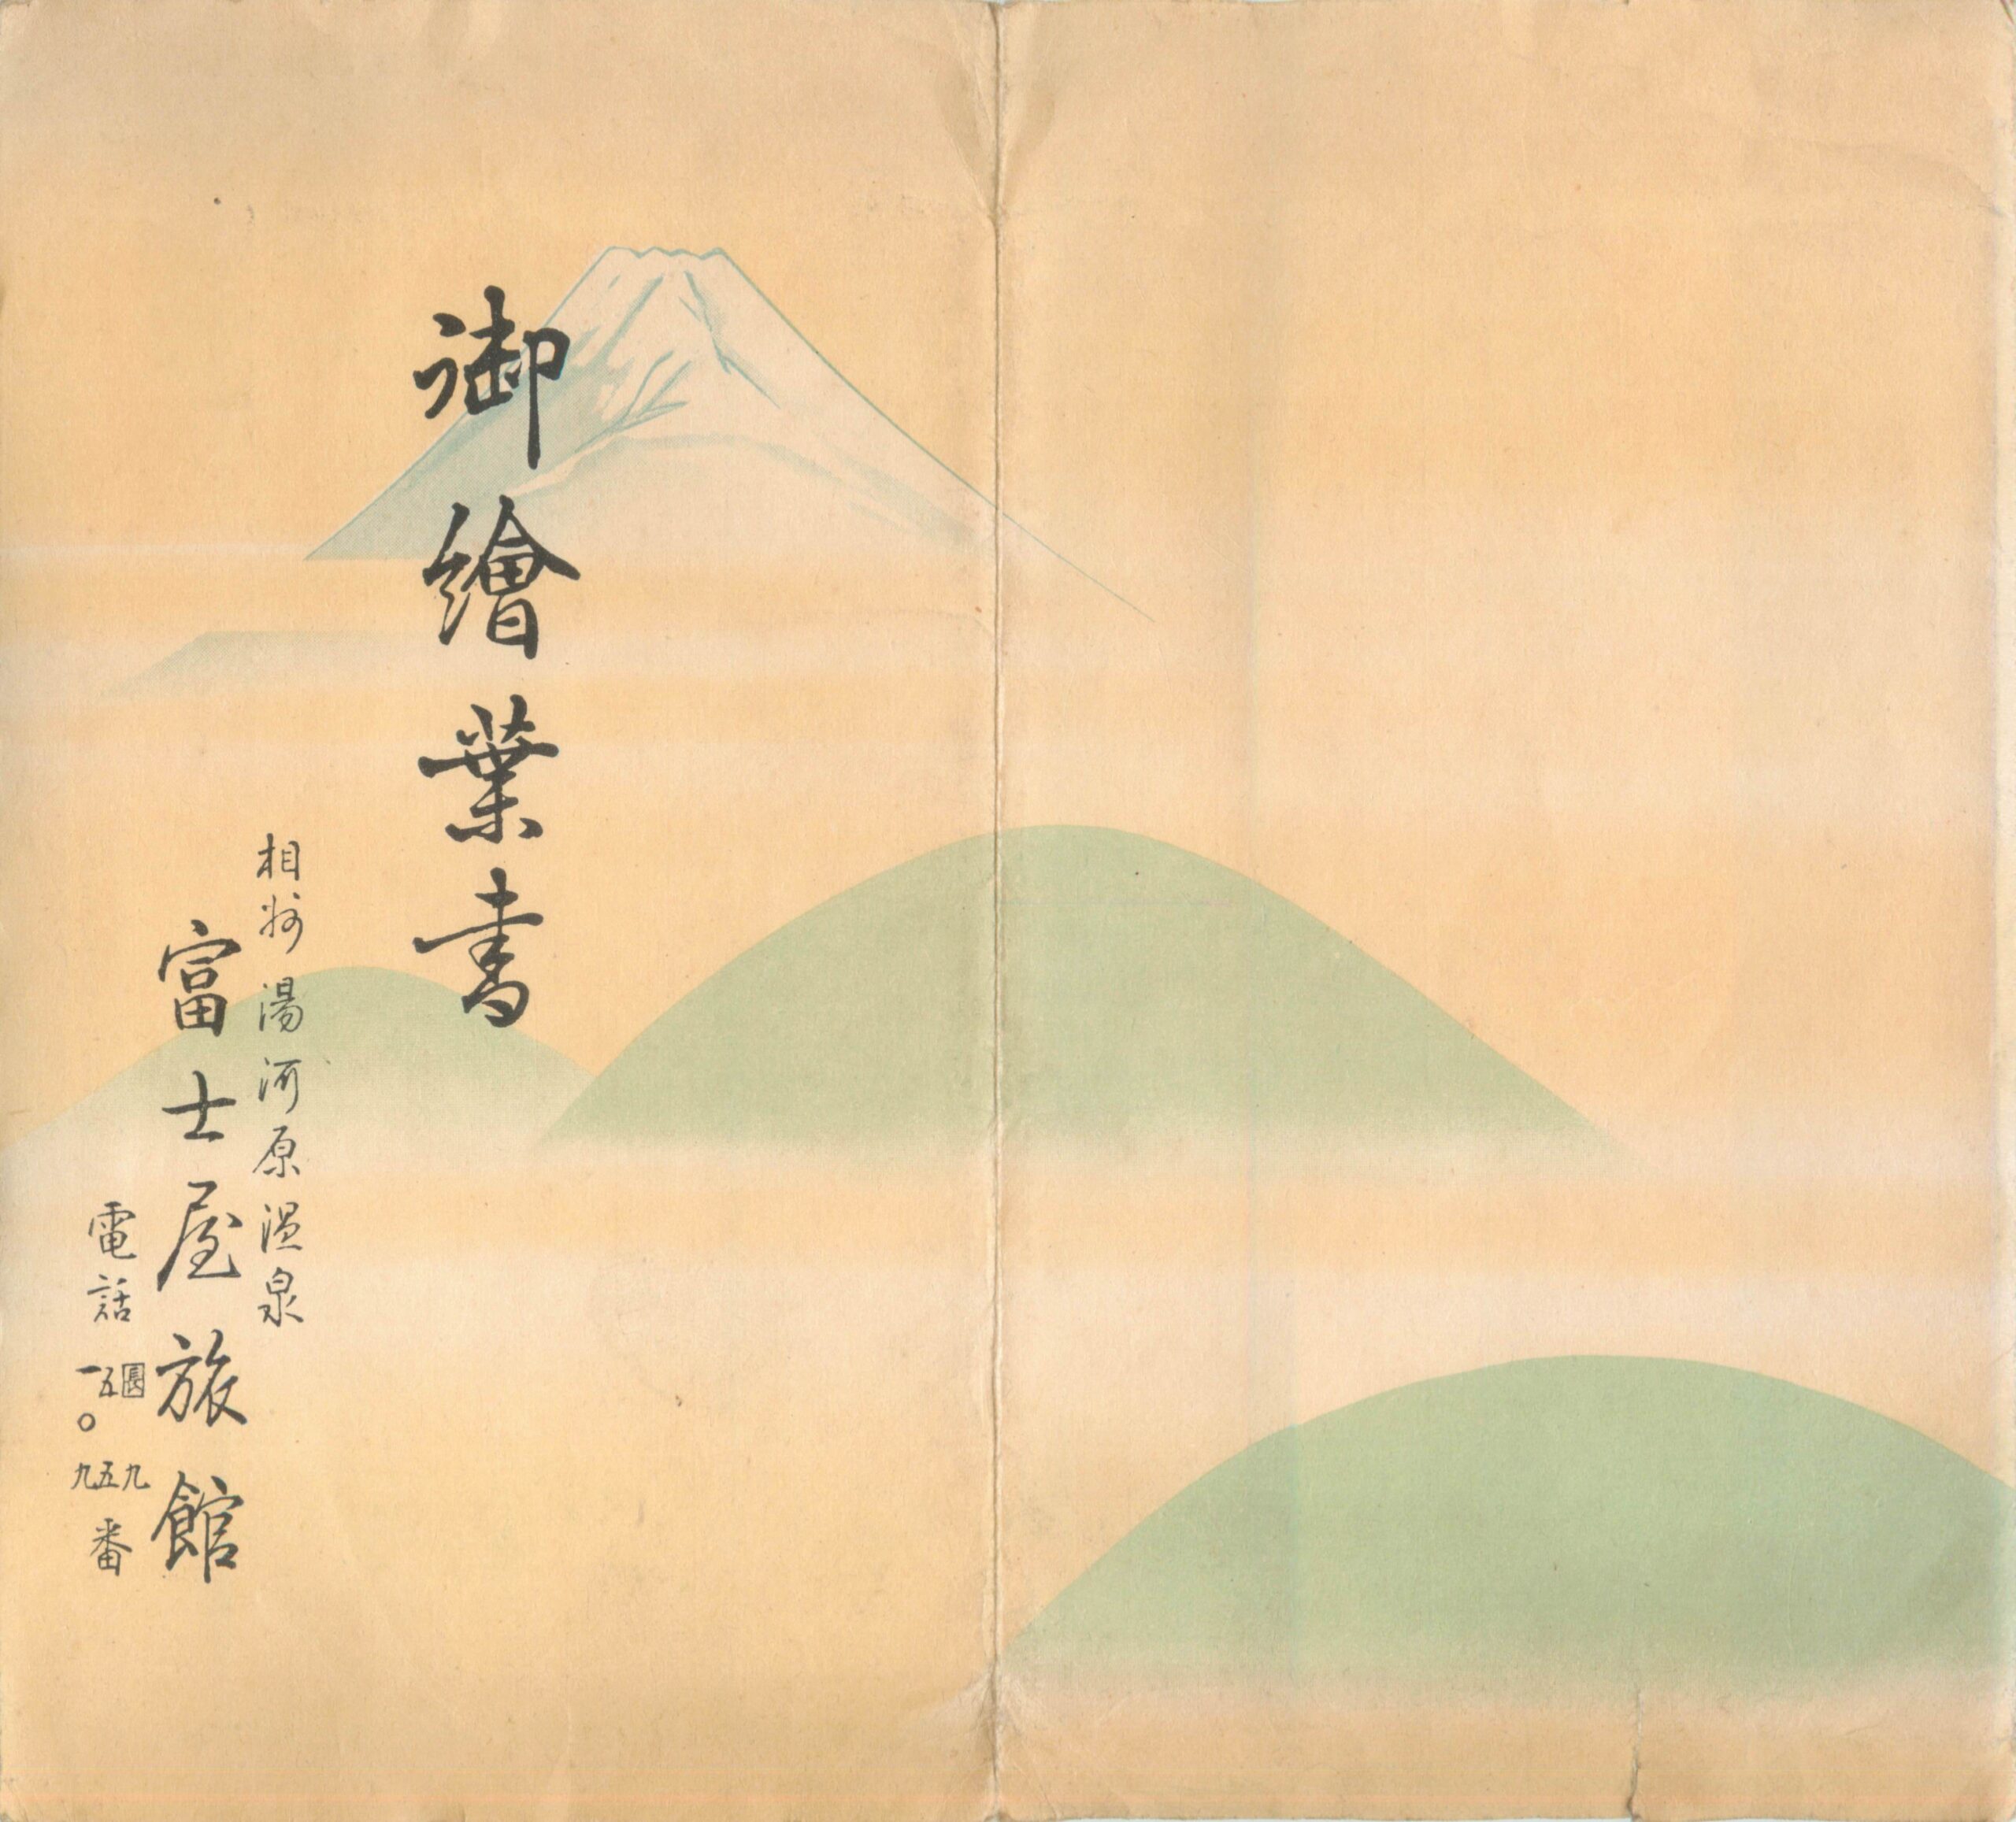 御繪葉書
相州湯河原温泉
富士屋旅館
電話
九
五五
一〇九
番